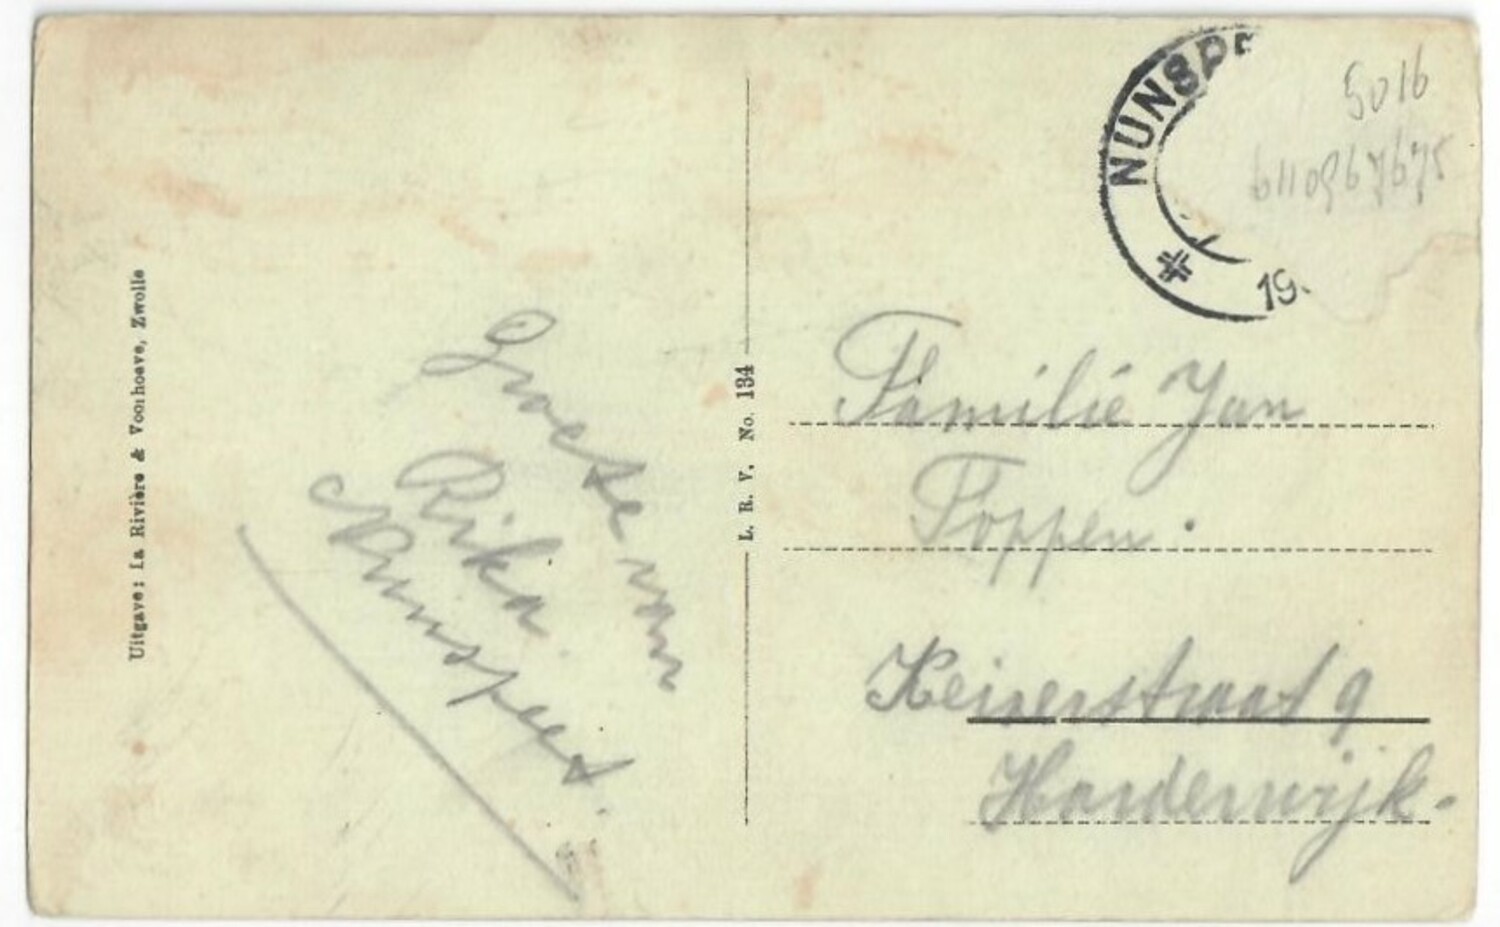 Uitgave: La Rivière & Voorhoeve, Zwolle
Groete van
Rika
Nunspeet.
L. R. V. No. 134
NUNSPE
19
5016
Familie Jan
Foppen.
Keizerstraat 9
Harderwijk.